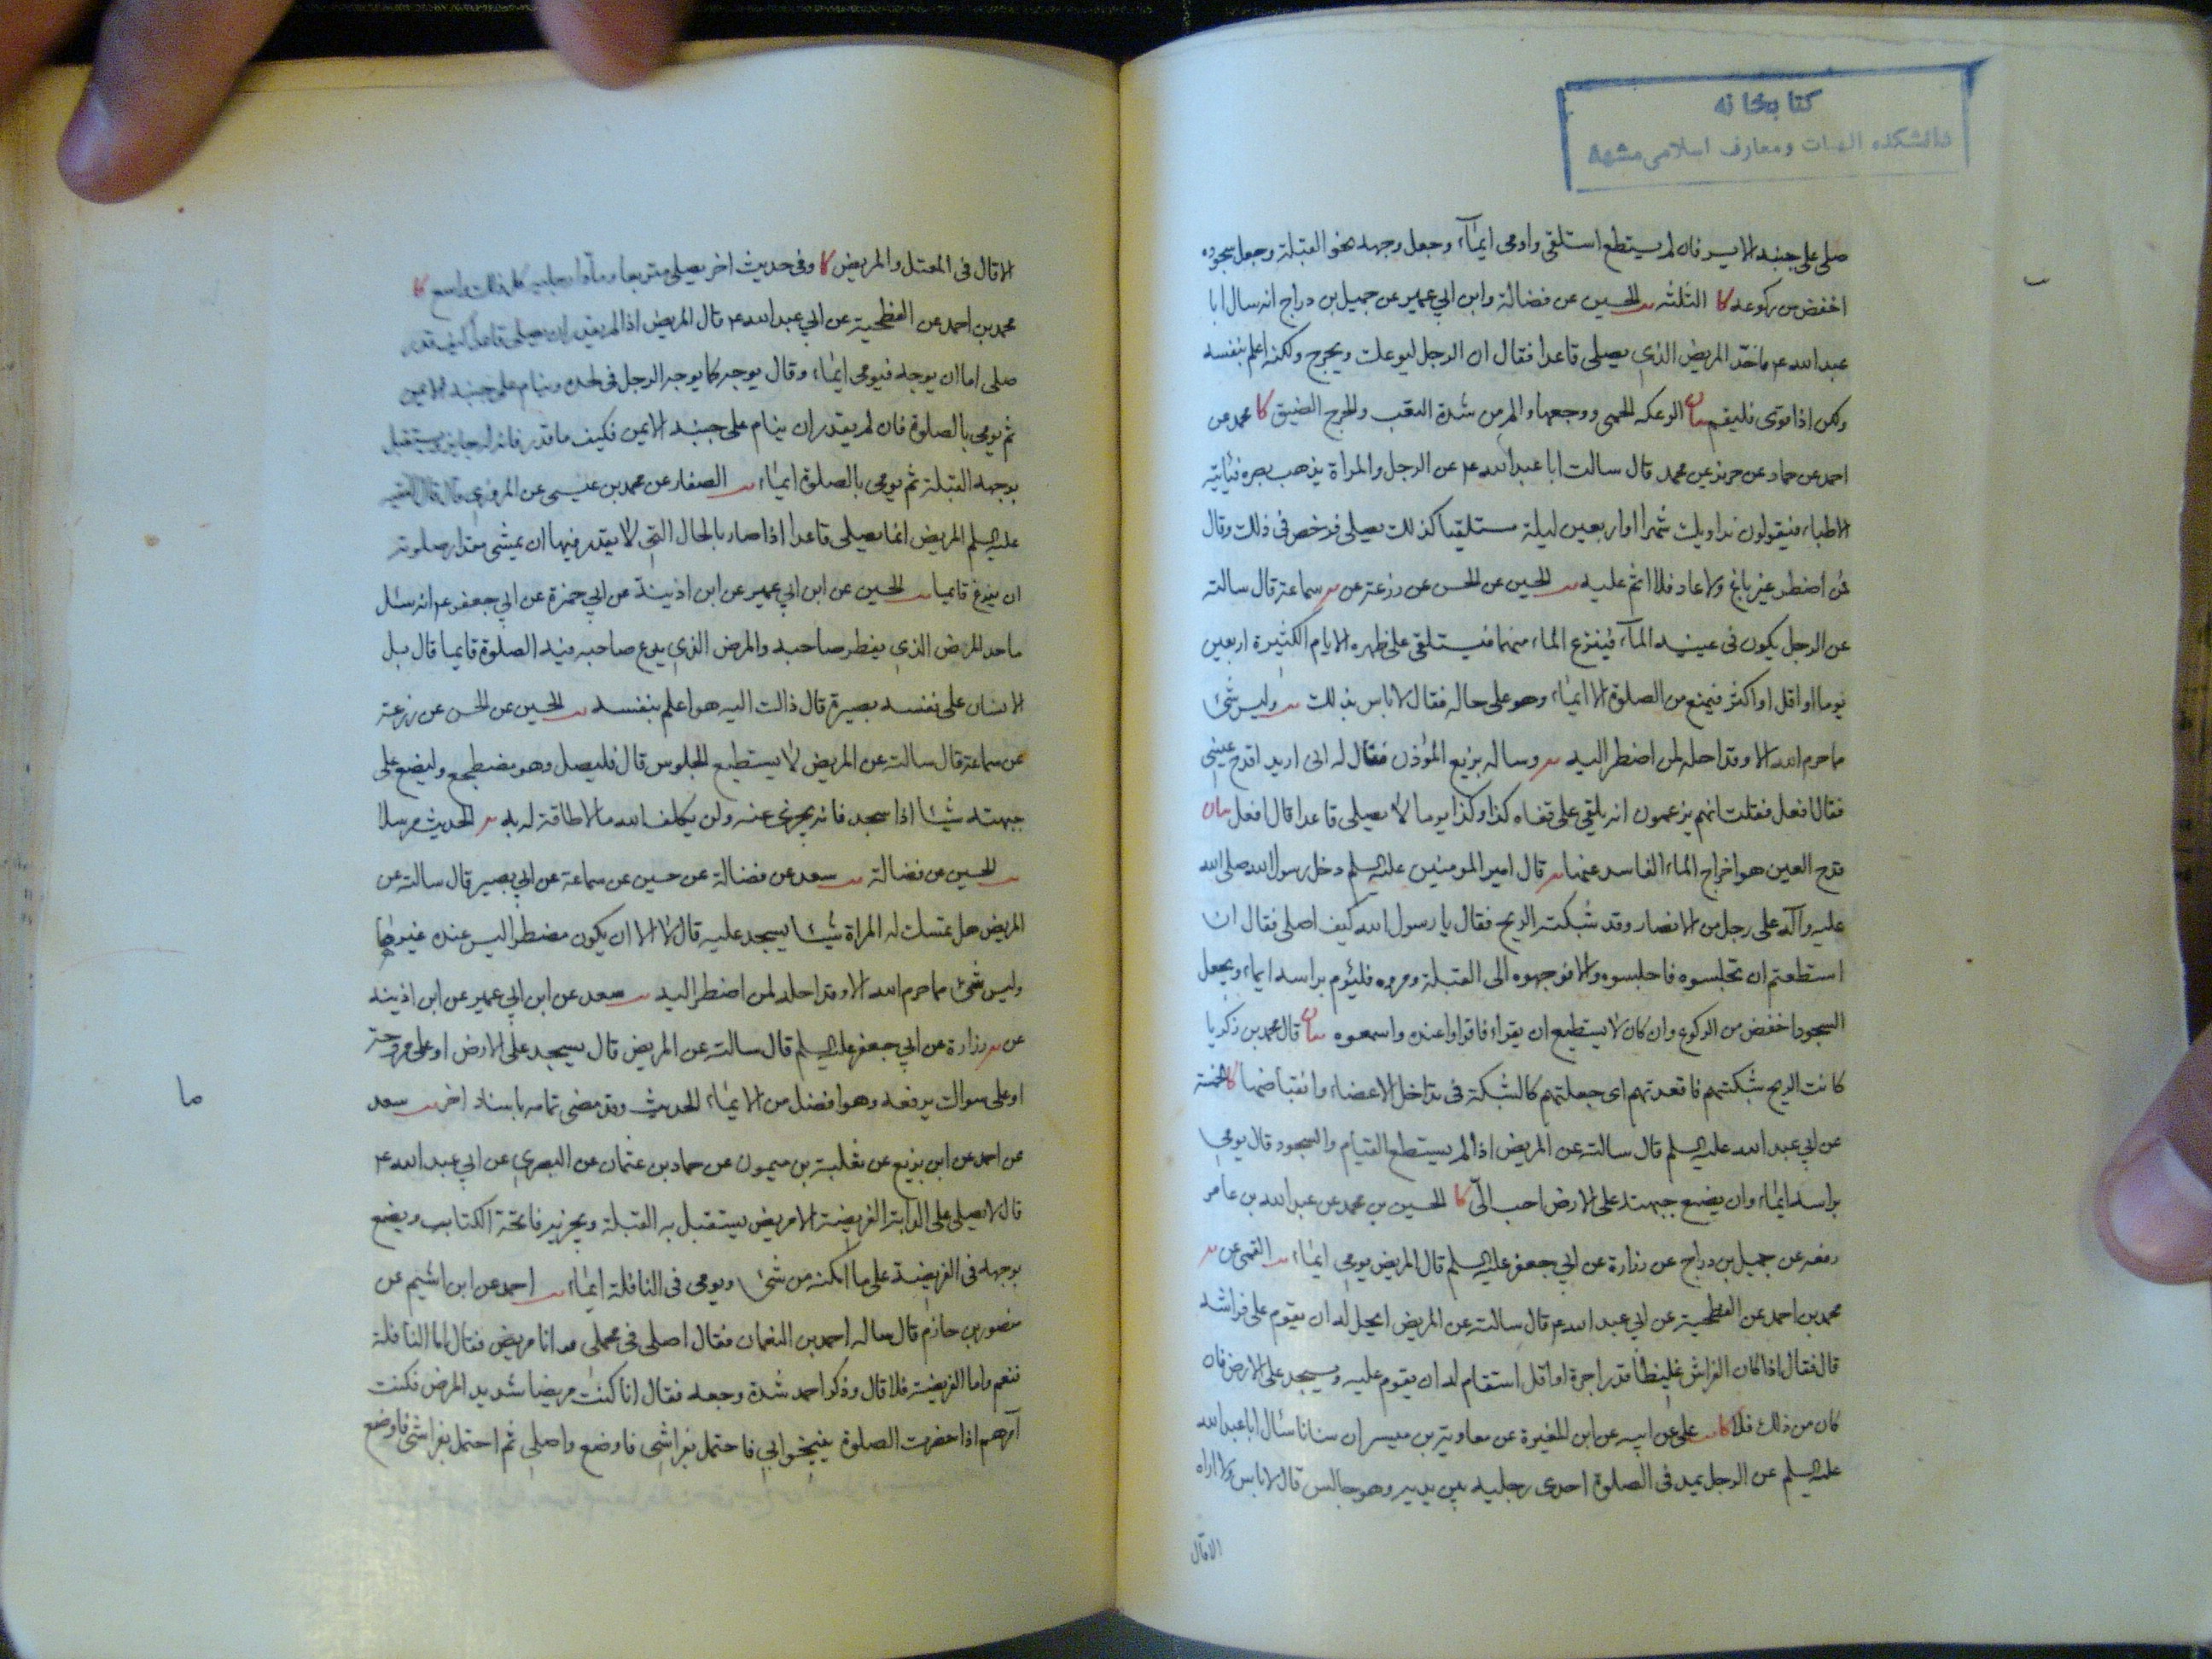 كتابخانه
دانشكده الهيات ومعارف اسلامى مشهد
صلى على جنبه الايسر فان لم يستطع استلقى واومى ايماآء وجعل وجهه نحو القبلة وجعل سجوده
اخفض من ركوعه كا الثلثه يب الحسين عن فضالة وابن ابي عمير عن جميل بن دراج انه سال ابا
عبد الله ع ما حدّ المريض الذي يصلى قاعدا فقال ان الرجل ليوعك ويحرج ولكنه اعلم بنفسه
ولكن اذا قوى فليقم بيان الوعكه الحمى ووجعها والم من شدة التعب والحرج الضيق كا محمد عن
احمد عن حماد عن حريز عن محمد قال سالت ابا عبد الله ع عن الرجل والمراة يذهب بصره فياتيه
الاطباء فيقولون نداويك شهرا او اربعين ليلة مستلقيا كذلك يصلى فرخص فى ذلك وقال
فمن اضطر غير باغ ولا عاد فلا اثم عليه يب الحسين عن الحسن عن زرعة عن يه سماعة قال سالته
عن الرجل يكون فى عينيه المآء فينزع الماء منهما فيستلقى على ظهره الايام الكثيرة اربعين
يوما او اقل او اكثر فيمنع من الصلوة الا ايماء وهو على حاله فقال لا باس بذلك يب وليس شئ
مما حرم الله الا وقد احله لمن اضطر اليه يه وساله بزيع المؤذن فقال له انى اريد اقدح عيني
فقال افعل فقلت انهم يزعمون انه يلقى على قفاه كذا وكذا يوما لا يصلى قاعدا قال افعل بيان
قدح العين هو اخراج الماء الفاسد عنها يه قال امير المومنين عليه السلم دخل رسول الله صلى الله
عليه وآله على رجل من الانصار وقد شبكته الريح فقال يا رسول الله كيف اصلى فقال ان
استطعتم ان تجلسوه فاجلسوه والا فوجهوه الى القبلة ومروه فليؤم براسه ايماء ويجعل
السجود اخفض من الركوع وان كان لا يستطيع ان يقراء فاقراوا عنده واسمعوه بيان قال محمد بن زكريا
كانت الريح شبكتهم فاقعدتهم اى جعلتهم كالشبكة فى تداخل الاعضاء وانقباضها كا الخمسة
عن ابي عبد الله عليه السلم قال سالته عن المريض اذا لم يستطع القيام والسجود قال يومي
براسه ايماء وان يضع جبهته على الارض احب الىّ كا الحسين بن محمد عن عبد الله بن عامر
رفعه عن جميل بن دراج عن زرارة عن ابي جعفر عليه السلم قال المريض يومي ايماء يب القمى عن يه
محمد بن احمد عن الفطحية عن ابي عبد الله ع قال سالته عن المريض ايحل له ان يقوم على فراشه
قال فقال اذا كان الفراش غليظا قدر اجرة او اقل استقام له ان يقوم عليه ويسجد على الارض فان
كان من ذلك فلا كا يب على عن ابيه عن ابن المغيرة عن معاوية بن ميسر ان سنانا سئال ابا عبد الله
عليه السلم عن الرجل يمد فى الصلوة احدى رجليه بين يديه وهو جالس قال لا باس ولا اراه
الا قال
الا قال فى المعتل والمريض كا وفى حديث اخر يصلى متربعا ومادّا رجليه كل ذلك واسع كا
محمد بن احمد عن الفطحية عن ابي عبد الله ع قال المريض اذا لم يقدر ان يصلى قاعدا كيف قدر
صلى اما ان يوجه فيومى ايماء وقال يوجه كما يوجه الرجل فى لحده وينام على جنبه الايمن
ثم يومى بالصلوة فان لم يقدر ان ينام على جنبه الايمن فكيف ما قدر فانه له جايز ويستقبل
بوجهه القبلة ثم يومى بالصلوة ايماء يب الصفار عن محمد بن عيسى عن المروزي قال قال الفقيه
عليه السلم المريض انما يصلى قاعدا اذا صار بالحال التى لا يقدر فيها ان يمشى مقدار صلوته
ان يفرغ قايما يب الحسين عن ابن ابي عمير عن ابن اذينة عن ابي حمزة عن ابي جعفر ع انه سئل
ما حد المرض الذي يفطر صاحبه والمرض الذي يدع صاحبه فيه الصلوة قايما قال بل
الانسان على نفسه بصيرة قال ذالك اليه هو اعلم بنفسه يب الحسين عن الحسن عن زرعة
عن سماعة قال سالته عن المريض لا يستطيع الجلوس قال فليصل وهو مضطجع وليضع على
جبهته شيئا اذا سجد فانه يجزى عنه ولن يكلف الله ما لا طاقة له به يه الحديث مرسلا
يب الحسين عن فضالة يب سعد عن فضالة عن حسين عن سماعة عن ابي بصير قال سالته عن
المريض هل تمسك له المراة شيئا يسجد عليه قال لا الا ان يكون مضطرا ليس عنده غيرها
وليس شئ مما حرم الله الا وقد احله لمن اضطر اليه يب سعد عن ابن ابي عمير عن ابن اذينه
عن يه زرارة عن ابي جعفر عليه السلم قال سالته عن المريض قال يسجد على الارض او على مروحة
او على سواك يرفعه وهو افضل من الايماء الحديث وقد مضى تمامه باسناد اخر يب سعد
عن احمد عن ابن بزيع عن ثعلبة بن ميمون عن حماد بن عثمان عن البصرى عن ابي عبد الله ع
قال لا يصلى على الدابة الفريضة الا مريض يستقبل به القبلة ويجزيه فاتحة الكتاب ويضع
بوجهه فى الفريضة على ما امكنه من شئ ويومى فى النافلة ايماء يب احمد عن ابن اشيم عن
منصور بن حازم قال ساله احمد بن النعمان فقال اصلى فى محملى وانا مريض فقال اما النافلة
فنعم واما الفريضة فلا قال وذكر احمد شدة وجعه فقال انا كنت مريضا شديد المرض فكنت
آمرهم اذا حضرت الصلوة ينيخوا بي فاحتمل بفراشى فاوضع واصلى ثم احتمل بفراشى فاوضع
ما